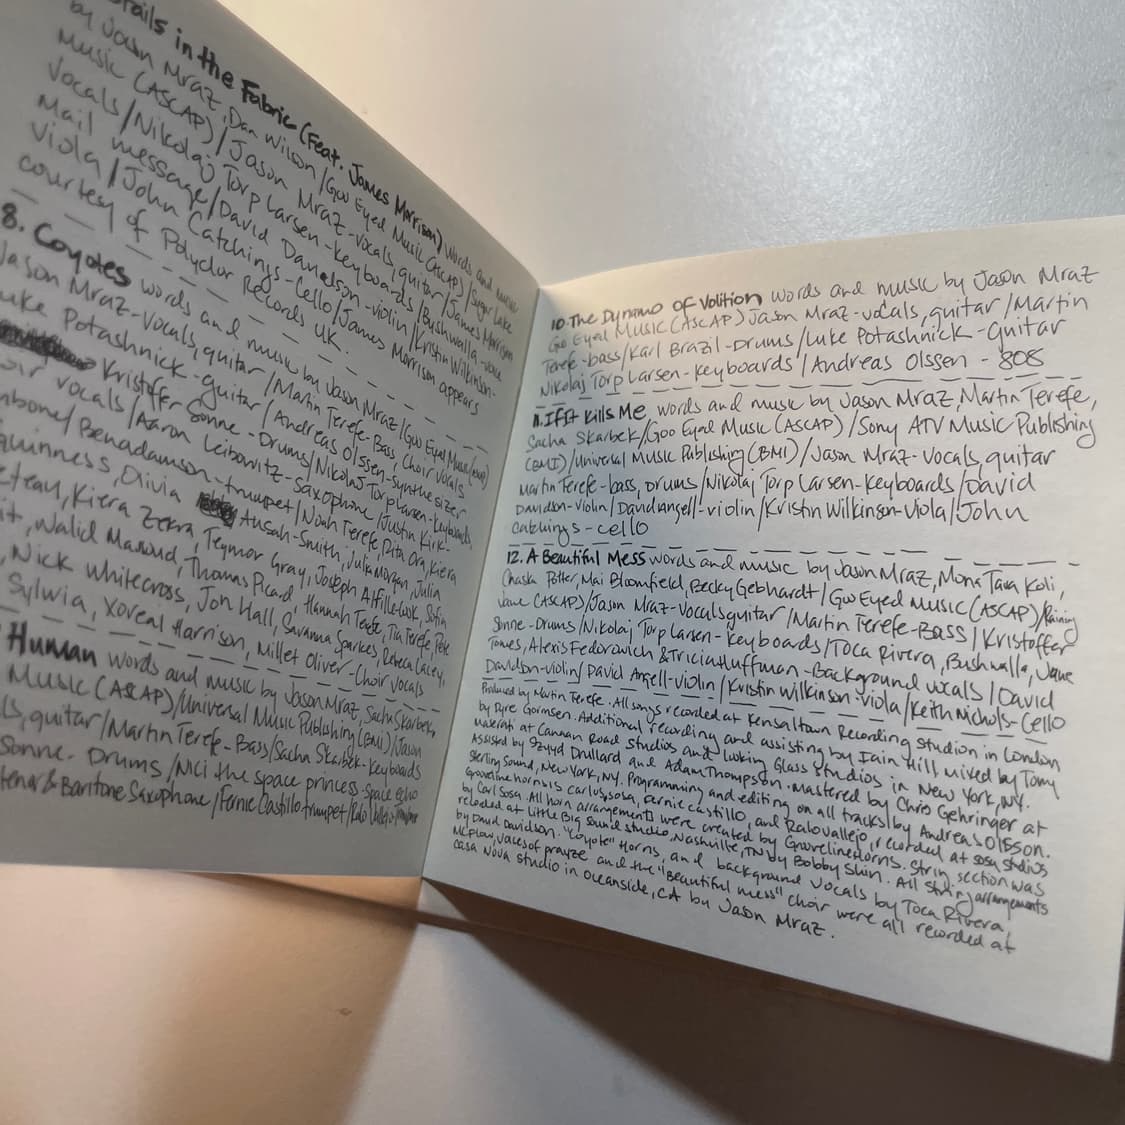 Details in the Fabric (Feat. James Morrison) words and music
by Jason Mraz, Dan Wilson/Goo Eyed Music (ASCAP)/Sugar Lake
Music (ASCAP)/Jason Mraz-vocals, guitar/James Morrison
Vocals/Nikolaj Torp Larsen-keyboards/Bushwalla-voice
Mail message/David Davidson-violin/Kristin Wilkinson-
viola/John Catchings-Cello/James Morrison appears
courtesy of Polydor Records UK.
8. Coyotes words and music by Jason Mraz/Goo Eyed Music (ASCAP)
Jason Mraz-Vocals, guitar/Martin Terefe-Bass, Choir vocals
Luke Potashnick-guitar/Andreas Olssen-synthesizer
Kristoffer Sonne-Drums/Nikolaj Torp Larsen-keyboards,
vocals/Aaron Leibowitz-saxophone/Justin Kirk-
Benadamson-trumpet/Noah Terefe, Rita Ora, Kiera
Guinness, Olivia Ausah-Smith, Julia Morgan, Julia
Kiera Zekra, Teymor Gray, Joseph Alfille-Cook, Sofia
Walid Masoud, Thomas Picard, Hannah Terefe, Tia Terefe, Pete
Nick Whitecross, Jon Hall, Savanna Sparkes, Rebeca Lacey,
Sylwia, Xoreal Harrison, Millet Oliver-Choir vocals
Human words and music by Jason Mraz, Sacha Skarbek,
Music (ASCAP)/Universal Music Publishing (BMI)/Jason
guitar/Martin Terefe-Bass/Sacha Skarbek-keyboards
Sonne-Drums/Nici the space princess-space echo
tenor & Baritone Saxophone/Fernie Castillo trumpet/Ralo Vallejo-
10. The Dynamo of Volition words and music by Jason Mraz
Goo Eyed Music (ASCAP) Jason Mraz-vocals, guitar/Martin
Terefe-bass/Karl Brazil-Drums/Luke Potashnick-Guitar
Nikolaj Torp Larsen-keyboards/Andreas Olssen-808
11. If It Kills Me, words and music by Jason Mraz, Martin Terefe,
Sacha Skarbek/Goo Eyed Music (ASCAP)/Sony ATV Music Publishing
(BMI)/Universal Music Publishing (BMI)/Jason Mraz-vocals, guitar
Martin Terefe-bass, drums/Nikolaj Torp Larsen-keyboards/David
Davidson-violin/David angell-violin/Kristin Wilkinson-Viola/John
Catchings-cello
12. A Beautiful Mess words and music by Jason Mraz, Mona Tavakoli,
Chaska Potter, Mai Bloomfield, Becky Gebhardt/Goo Eyed Music (ASCAP)/Raining
Jane (ASCAP)/Jason Mraz-Vocals guitar/Martin Terefe-Bass/Kristoffer
Sonne-Drums/Nikolaj Torp Larsen-keyboards/Toca Rivera, Bushwalla, Jane
Tomes, Alexis Fedorowich & Tricia Huffman-Background vocals/David
Davidson-violin/David Angell-violin/Kristin Wilkinson-viola/Keith Nichols-Cello
Produced by Martin Terefe. All songs recorded at Kensaltown Recording Studion in London
by Dyre Gormsen. Additional recording and assisting by Iain Hill mixed by Tony
Maserati at Cannan Road Studios and Looking Glass Studios in New York, NY.
Assisted by Dullard and Adam Thompson. Mastered by Chris Gehringer at
Sterling Sound, New York, NY. Programming and editing on all tracks by Andreas Olsson.
Grooveline horns is carlos, sosa, fernie castillo, and Ralo vallejo, recorded at sosy studios
by Carl Sosa. All horn arrangements were created by Grooveline Horns. String section was
recorded at Little Big Sound studio, Nashville, TN by Bobby Shin. All string arrangements
by David Davidson. "Coyote" Horns, and background vocals by Toca Rivera,
McFlow, voices of prayze and the "Beautiful mess" choir were all recorded at
casa Nova studio in oceanside, CA by Jason Mraz.